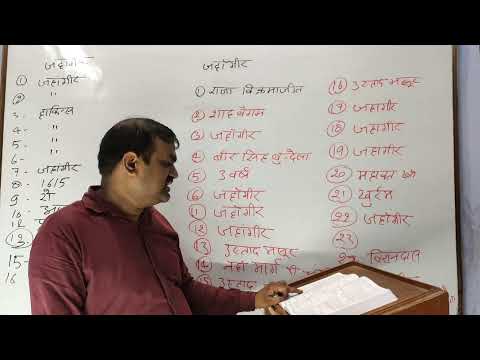 जहांगीर
① जहांगीर
② "
3. हाकिन्स
4 - "
5 - "
6 -
7 - जहांगीर
8 - 1615
9 -
10 -
12
13
15 -
16
जहाँगीर
① राजा विक्रमाजीत
② शाह बेगम
③ जहाँगीर
④ बीर सिंह बुन्देला
⑤ 3 वर्ष
⑥ जहाँगीर
11 जहाँगीर
12 जहाँगीर
13 उस्ताद मंसूर
14
15 उस्ताद
16 उस्ताद मंसूर
17 जहांगीर
18 जहांगीर
19 जहांगीर
20 महावत खाँ
21 खुर्रम
22 जहांगीर
23
24 बिशनदास